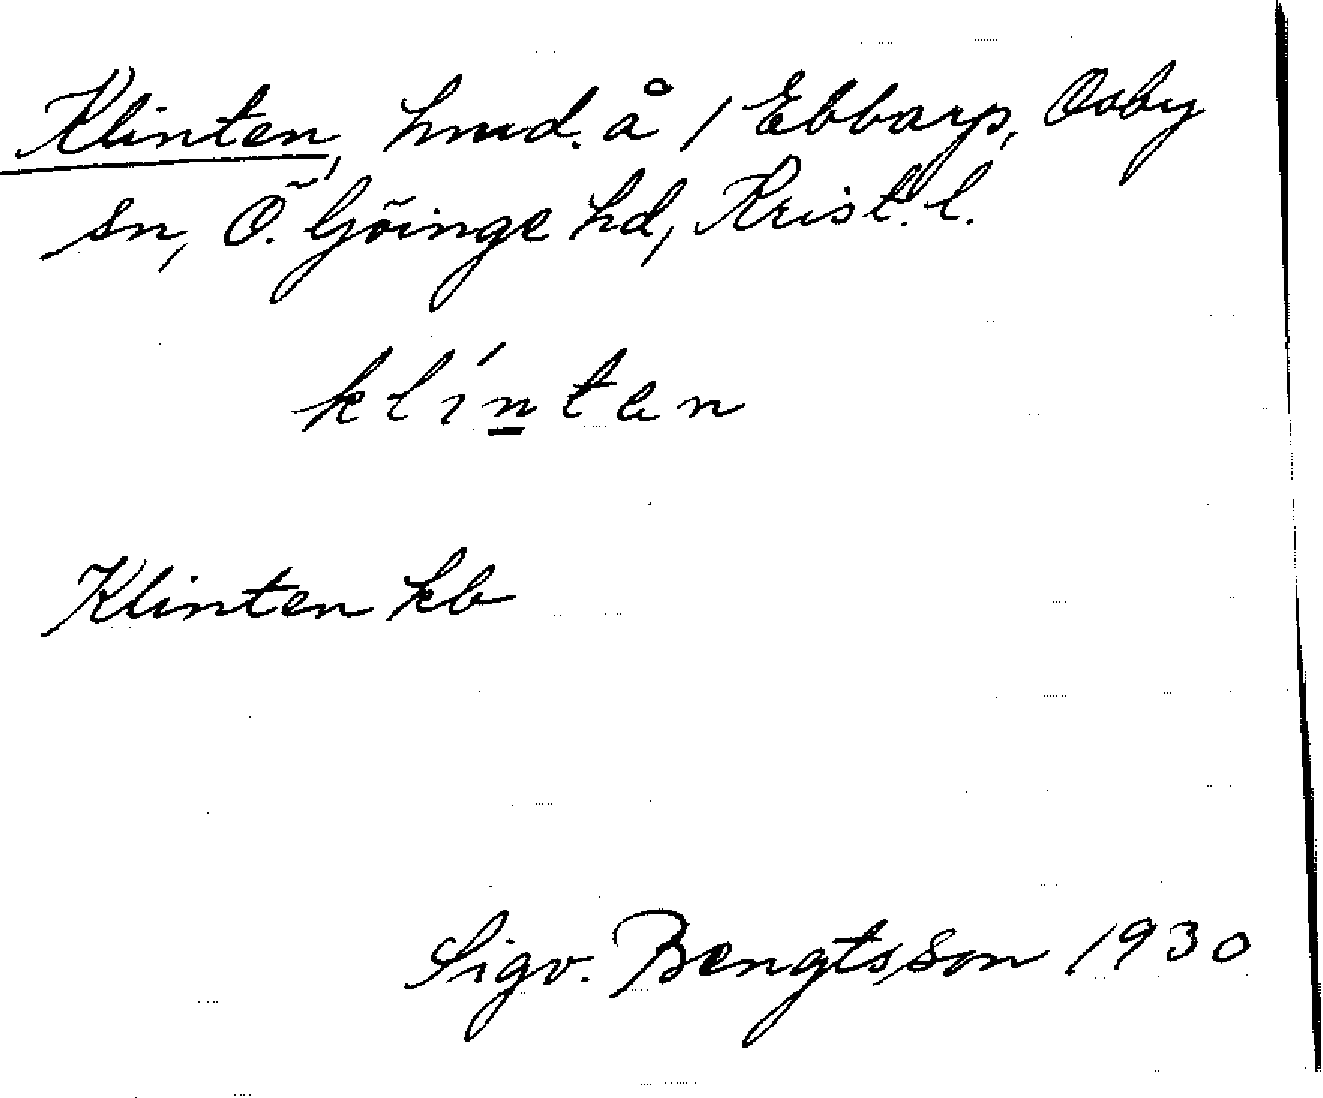 Klinten, hmd. å 1 Ebbarp, Osby
sn, Ö. Göinge hd, Krist. l.
klínten
Klinten kb
Sigv. Bengtsson 1930